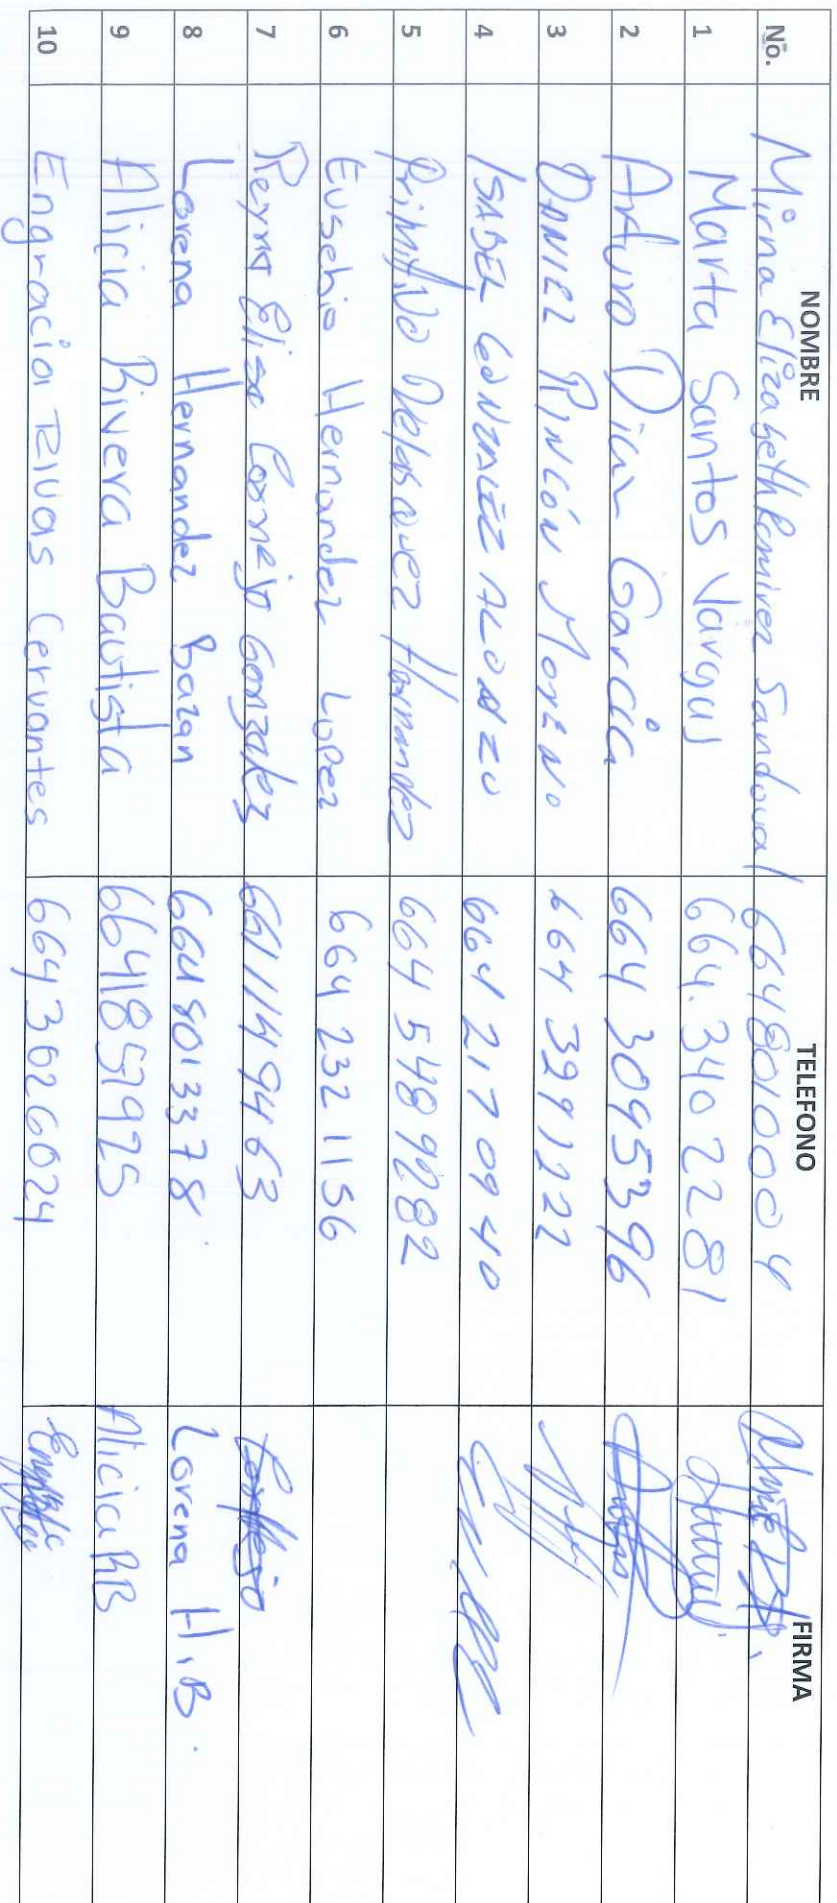 No. NOMBRE TELEFONO FIRMA
Mirna Elizabeth Ramirez Sandoval 6648010004
1 Marta Santos Vargas 664.340 2281
2 Arturo Diaz Garcia 664 3095396
3 DANIEL RINCÓN MORENO 664 3291222
4 ISABEL GONZALEZ ALONZO 664 217 0940
5 Primitivo Velasquez Hernandez 664 548 9282
6 Eusebio Hernandez Lopez 664 232 1156
7 Reyna Elisa Cornejo Gonzalez 661 114 9463 Cornejo
8 Lorena Hernandez Bazan 664 801 3378 Lorena H.B.
9 Alicia Rivera Bautista 6641857925 Alicia RB
10 Engracia Rivas Cervantes 6643626024